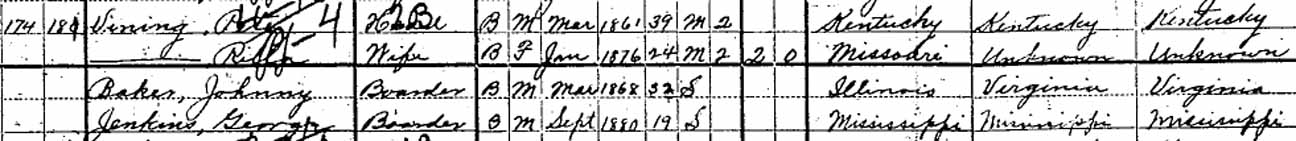 174 Vining, B M Mar 1861 39 M 2 Kentucky Kentucky Kentucky
Wife B F Jan 1876 24 M 2 2 0 Missouri Unknown Unknown
Baker, Johnny Boarder B M Mar 1868 32 S Illinois Virginia Virginia
Jenkins, George Boarder B M Sept 1880 19 S Mississippi Mississippi Mississippi